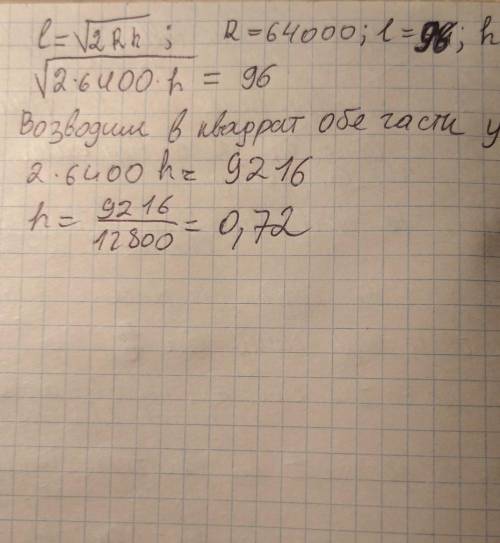 l = √2Rh ; R = 64000; l = 96; h
√2·6400·h = 96
Возводим в квадрат обе части у
2·6400 h = 9216
h = 9216/12800 = 0,72